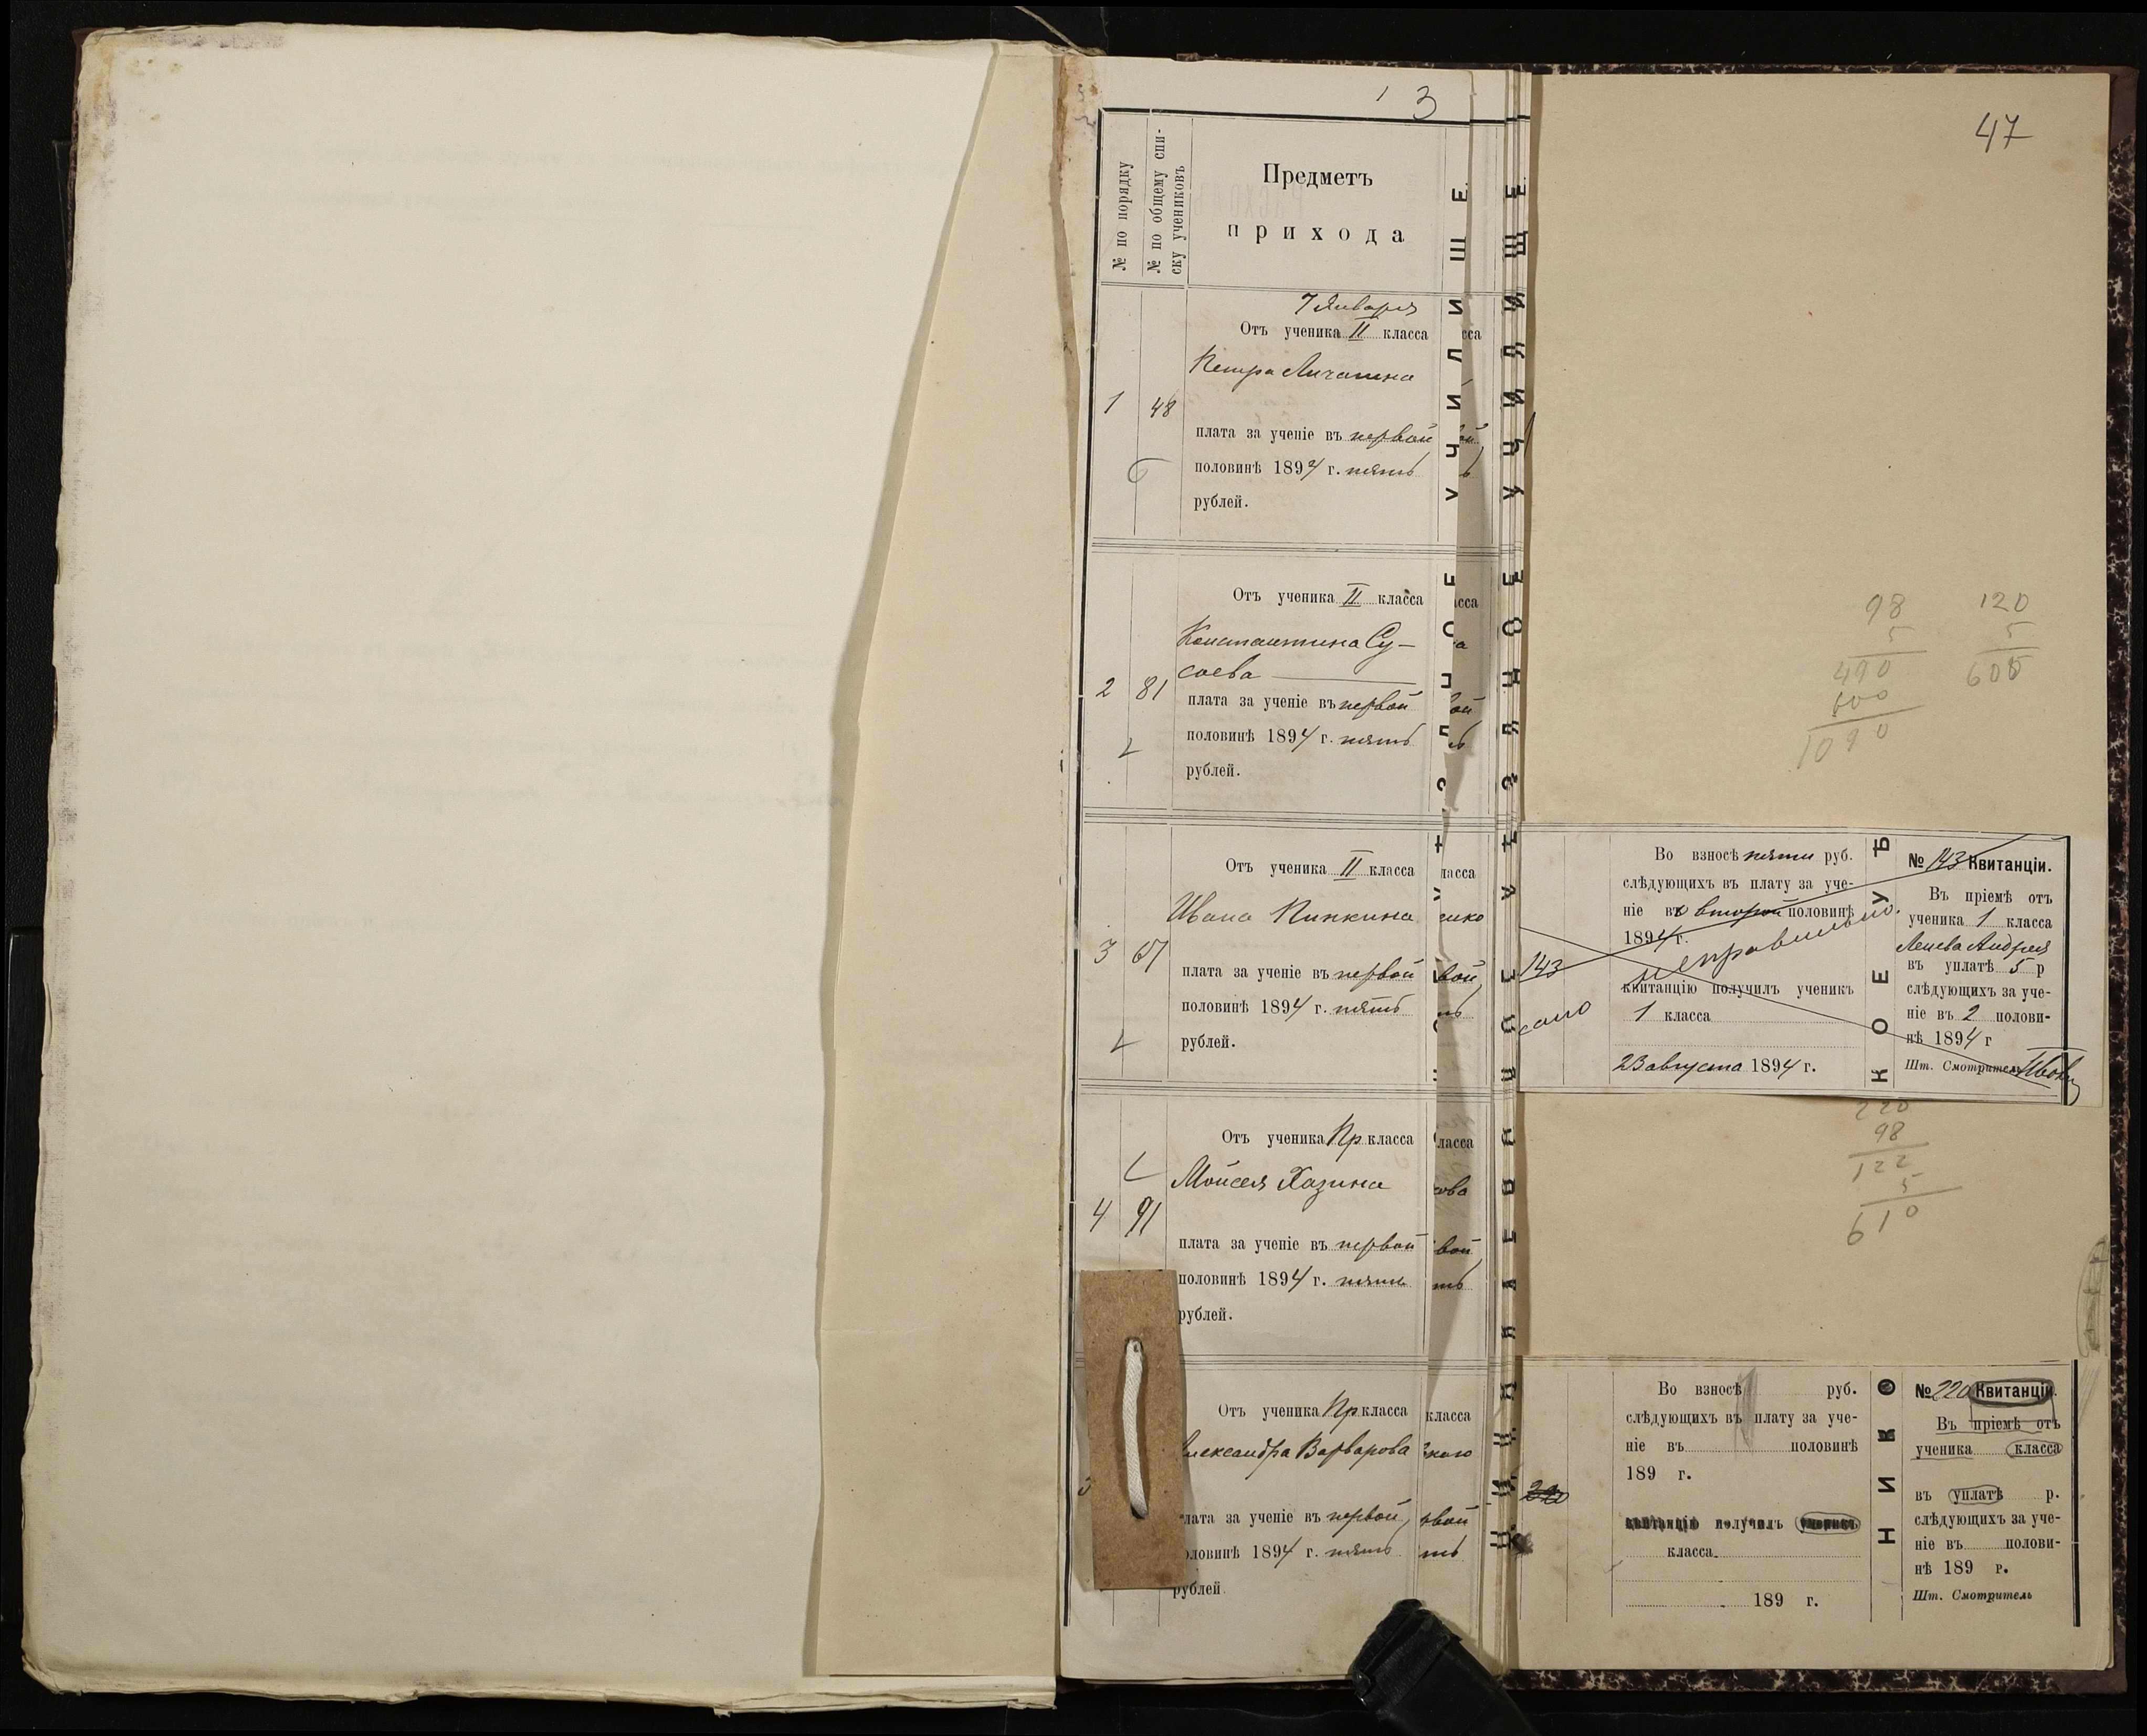 3
№ по порядку
№ по общему спи-
ску учениковъ
Предметъ
прихода
7 Января
Отъ ученика II класса
Петра Личатина
1 48
плата за ученіе въ первой
половинѣ 1894 г. пять
рублей.
Отъ ученика II класса
Константина Су-
соева
2 81
плата за ученіе въ первой
половинѣ 1894 г. пять
рублей.
Отъ ученика II класса
Ивана Пипкина
3
плата за ученіе въ первой
половинѣ 1894 г. пять
рублей.
Отъ ученика Пр. класса
Мойсея Хазина
4 91
плата за ученіе въ первой
половинѣ 1894 г. пять
рублей.
Отъ ученика Пр. класса
Александра Варварова
лата за ученіе въ первой
оловинѣ 1894 г. пять
рублей.
47
98
5
490
600
1090
120
5
600
143
Во взносѣ пяти руб.
слѣдующихъ въ плату за уче-
ніе въ второй половинѣ
1894 г.
неправильно.
квитанцію получилъ ученикъ
1 класса
23 августа 1894 г.
КОЕ УѢ
№ 143 Квитанціи.
Въ пріемѣ отъ
ученика 1 класса
Лиева Андрея
въ уплатѣ 5 р
слѣдующихъ за уче-
ніе въ 2 полови-
нѣ 1894 г
Шт. Смотритель
220
98
122
5
610
220
Во взносѣ руб.
слѣдующихъ въ плату за уче-
ніе въ половинѣ
189 г.
квитанцію получилъ ученикъ
класса
189 г.
НИКО
№ 220 Квитанціи.
Въ пріемѣ отъ
ученика класса
въ уплатѣ р.
слѣдующихъ за уче-
ніе въ полови-
нѣ 189 г.
Шт. Смотритель